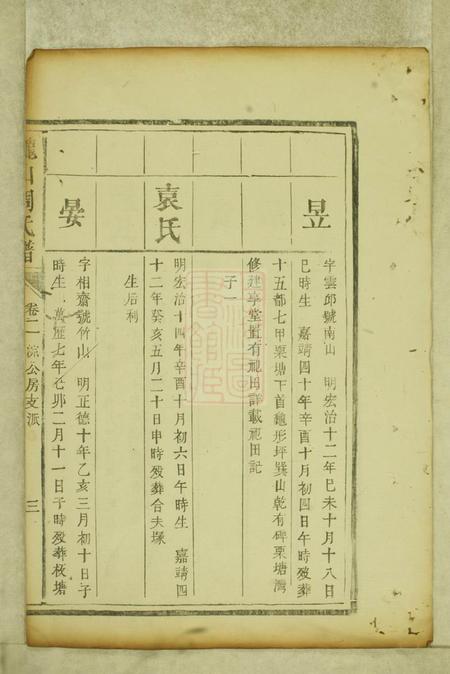 昱
字雲邱號南山 明宏治十二年巳未十月十八日
巳時生 嘉靖四十年辛酉十月初四日午時歿葬
十五都七甲栗塘下首龜形坪巽山乾有碑栗塘灣
修建享堂置有祀田詳載祀田記
子一
袁氏
明宏治十四年辛酉十月初六日午時生 嘉靖四
十二年癸亥五月二十日申時歿葬合夫塚
生后利
晏
字相齋號竹山 明正德十年乙亥三月初十日子
時生 萬歷七年己卯二月十一日子時歿葬板塘
周氏譜 卷二 公房支派 三